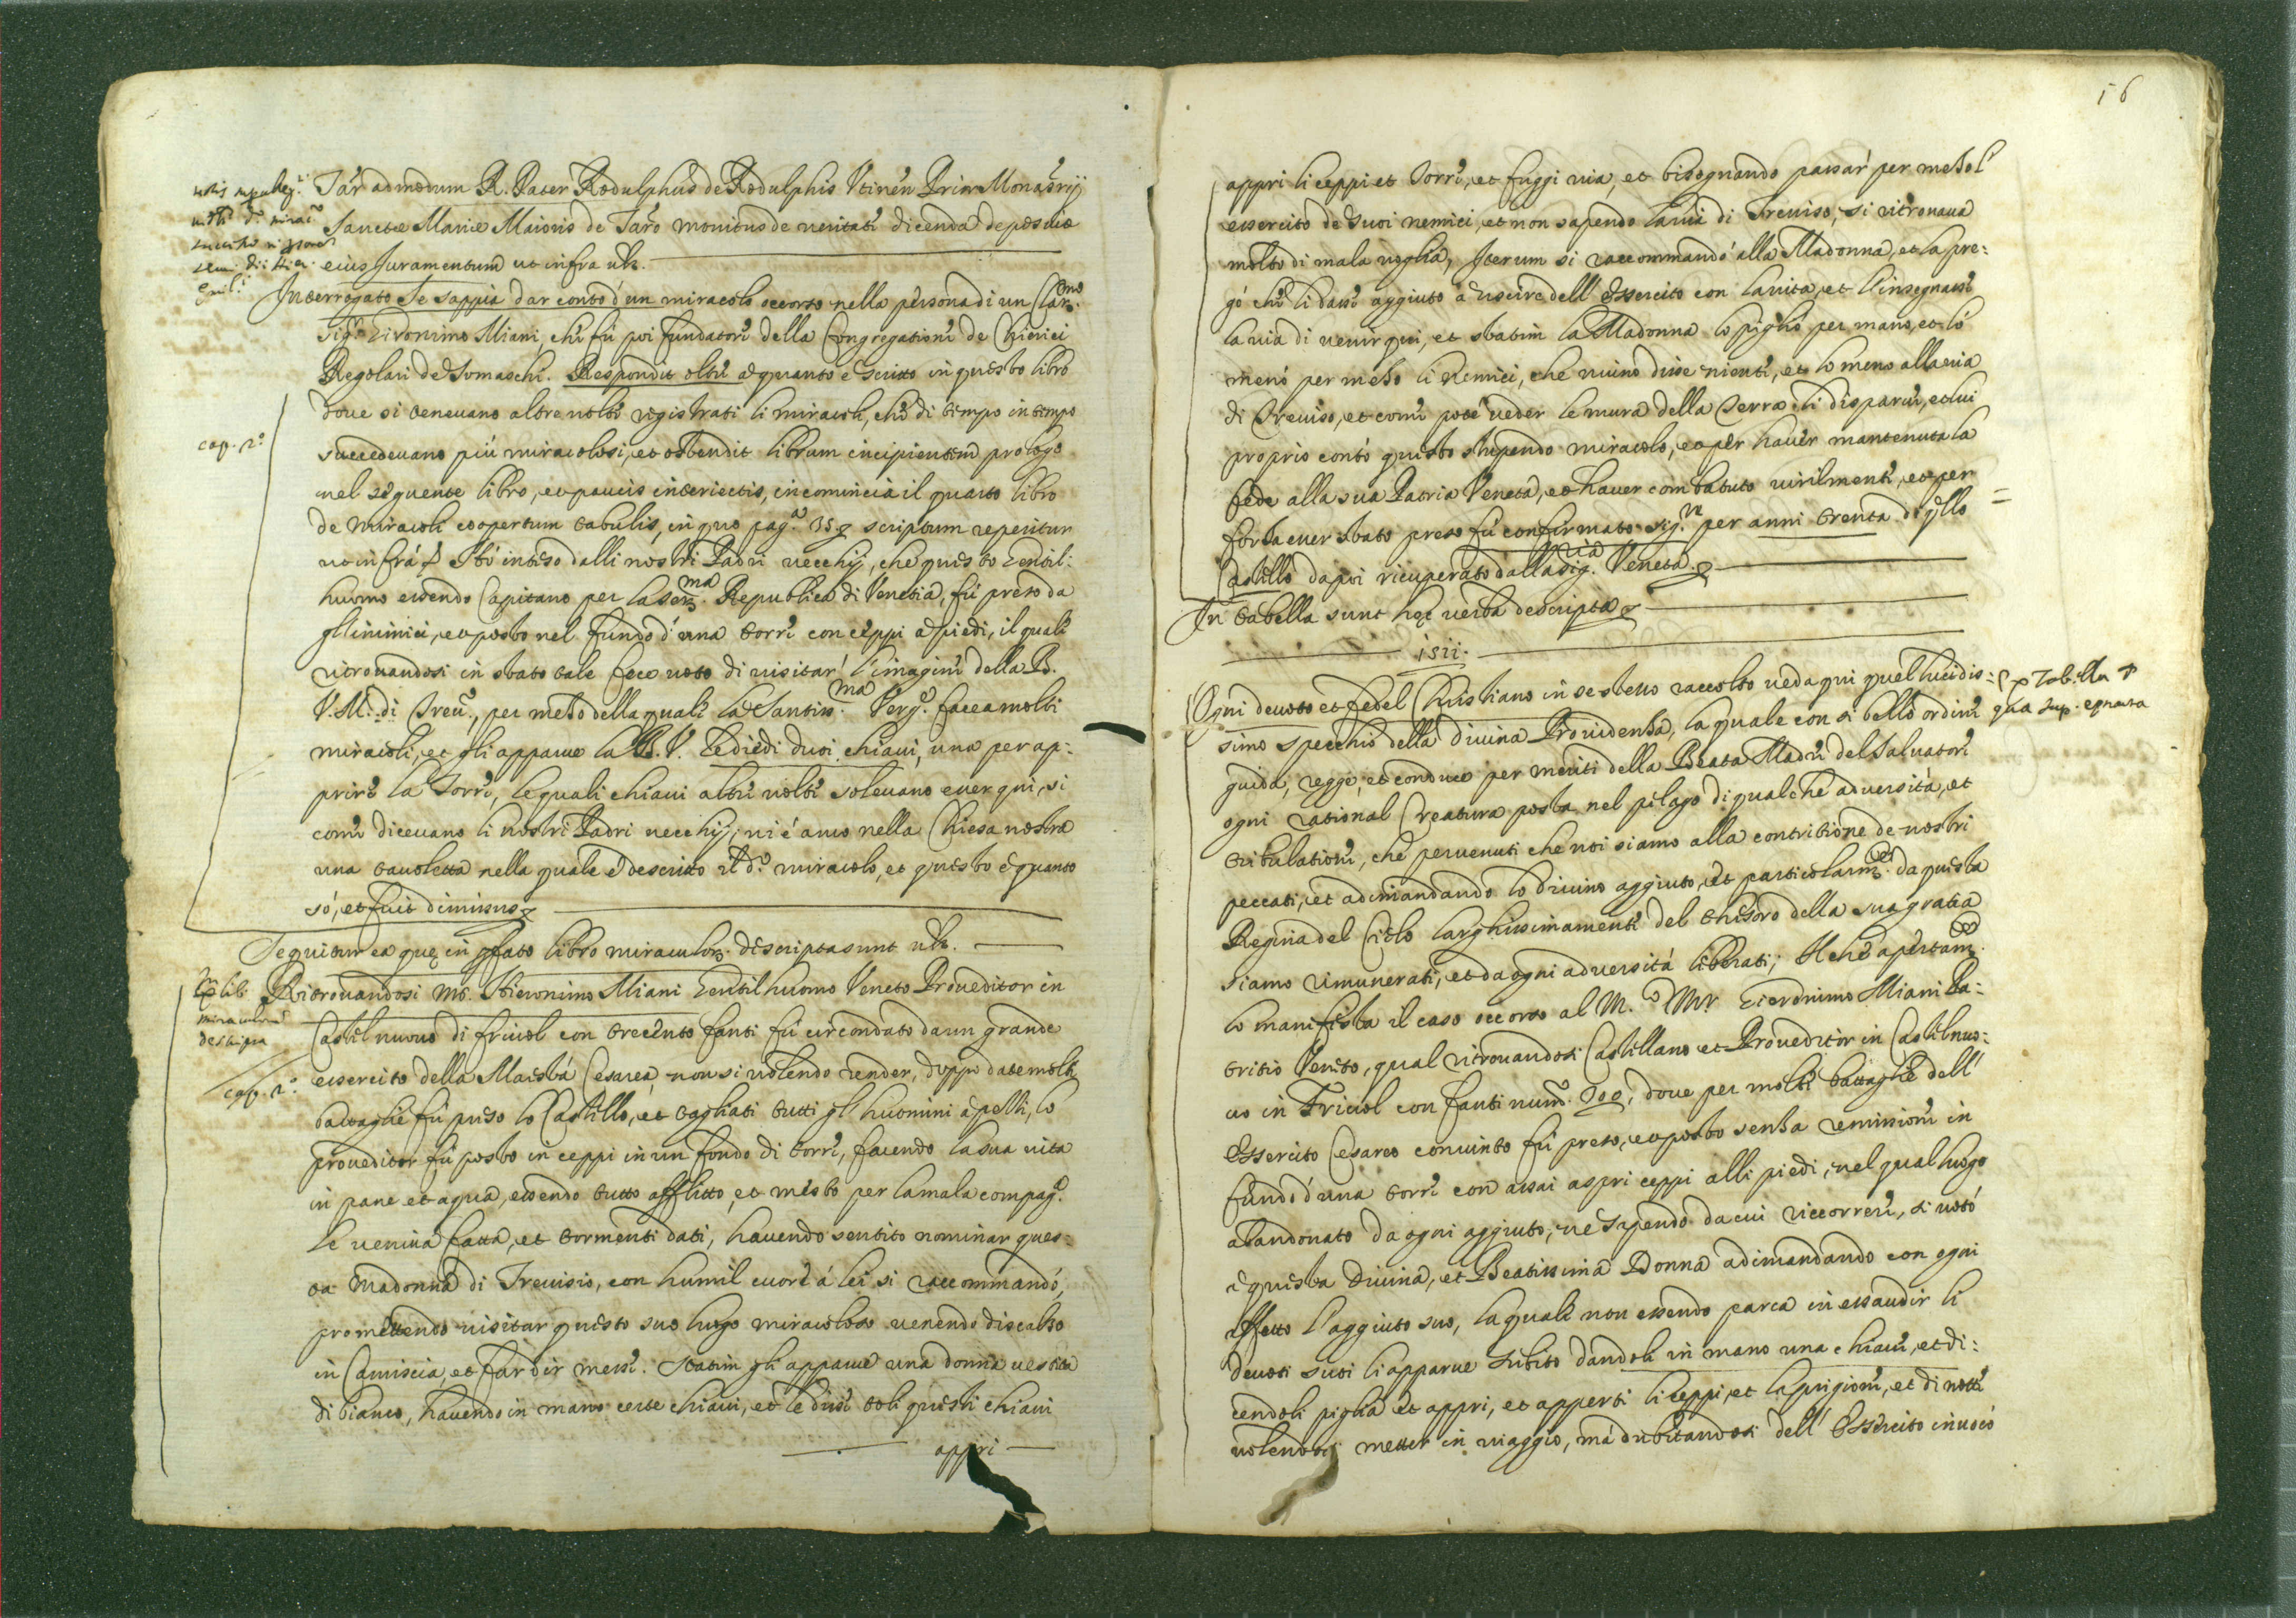 Tar. admodum R. Pater Rodulphus de Rodulphis Utinen Prior Monasrij
Sanctæ Mariæ Maioris de Taro monitus de veritate dicenda deposuit
eius Juramentum ut infra ulz.
Interrogato se sappia dar conto d'un miracolo occorso nella persona di un Clar.mo
Sig.r Gironimo Miani, che fù poi fundatore della Congregatione de Chierici
Regolari de Somascha. Respondit oltre a quanto è scritto in questo libro
cap. 2.o
dove si tenevano altre volte registrati li miracoli, che di tempo in tempo
succedevano più miracolosi, et ostendit librum incipientem prologo
nel sequente libro, et paucis interiectis, incomincia il quarto libro
de miracoli coopertum tabulis, in quo pag.a 35 scriptum reperitur
ut infrà Hò inteso dalli nostri Padri vecchij, che questo Gentil:
huomo essendo Capitano per la Ser.ma Republica di Venetia, fù preso da
gl'inimici, et posto nel fundo d'una torre con ceppi a piedi, il quale
ritrovandosi in stato tale fece voto di visitar l'imagine della B.
V. M. di Trev.o, per mezo della quale la Santiss.ma Verg.e facea molti
miracoli, et gli apparue la B. V. le diedi duoi chiavi, una per ap:
prire la Torre, le quali chiavi altre volte solevano esser qui, si
come dicevano li nostri Padri vecchij, vi è anco nella Chiesa nostra
una tavoletta nella quale è descritto il d.o miracolo, et questo è quanto
sò, et fuit dimissus
Sequitur ea quę in pfato libro miraculor. descripta sunt ulz.
lib.
miraculorum
descripta
Ritrovandosi Ms. Hieronimo Miani Gentilhuomo Veneto Proveditor in
Castel nuovo di friuol con trecento fanti fù circondato da un grande
cap. 2.o
essercito della Maestà Cesarea, non si volendo render, doppo date molte
battaglie fù preso lo Castello, et tagliati tutti gl'huomini a pezzi, lo
proveditor fù posto in ceppi in un fondo di torre, facendo la sua vita
in pane et aqua, essendo tutto afflitto, et mesto per la mala compag.a
le veniva fatta, et tormenti dati, havendo sentito nominar ques:
ta Madonna di Trevisio, con humil cuore à lei si raccommandò,
promettendo visitar questo suo luogo miracoloso venendo discalzo
in Camiscia, et far dir messe. Statim gli apparue una donna vestita
di bianco, havendo in mano certe chiavi, et le disse toli queste chiavi
appri
16
appri li ceppi et Torre, et fuggi via, et bisognando passar per mezo l'
essercito de suoi nemici, et non sapendo la via di Treviso, si ritronava
molto di mala voglia, Iterum si raccommandò alla Madonna, et la pre:
gò che li dasse aggiuto a uscire dell'Essercito con la vita, et l'insegnasse
la via di venir qui, et statim la Madonna lo pigliò per mano, et lo
menò per mezo li Nemici, che niuno disse niente, et lo meno alla via
di Treviso, et come pote veder le mura della Terra li disparue, et lui
proprio contò questo stupendo miracolo, et per haver mantenuta la
fede alla sua Patria Veneta, et haver combatuto virilmente, et per
forza esser stato preso fù confirmato Sig.r per anni trenta di qllo
Castello dapoi ricuperato dalla Sig.ria Veneta.
In tabella sunt hęc verba descripta
1511.
Ogni devoto et fedel Christiano in se stesso raccolto veda qui quel lucidis:
ex Tabella
qua sup.
simo specchio della divina Providenza, la quale con si bello ordine
guida, regge, et conduce per meriti della Beata Madre del Salvatore
ogni rational Creatura posta nel pelago di qualche adversità, et
tribulatione, che pervenuti che noi siamo alla contritione de nostri
peccati, et adimandando lo divino aggiuto, et particolarm.te da questa
Regina del Cielo larghissimamente del thesoro della sua gratia
siamo rimunerati, et da ogni adversità liberati; Il che apertam.te
lo manifesta il caso occorso al M.co Mr Gieronimo Miani Pa:
tritio Veneto, qual ritrovandosi Castellano et Proveditor in Castelnuo:
vo in Friuol con fanti num.o 300, dove per molte battaglie dell'
Essercito Cesareo convinto fù preso, et posto senza remissione in
fundo d'una torre con assai aspri ceppi alli piedi, nel qual luogo
abandonato da ogni aggiuto, ne sapendo da cui riccorrere, si votò
a questa Divina, et Beatissima Donna adimandando con ogni
affetto l'aggiuto suo, la quale non essendo parca in essaudir li
devoti suoi li apparue subito dandoli in mano una chiave, et di:
cendoli piglia et appri, et apperti li ceppi, et la prigione, et di notte
volendosi metter in viaggio, mà dubitandosi dell'Essercito invocò